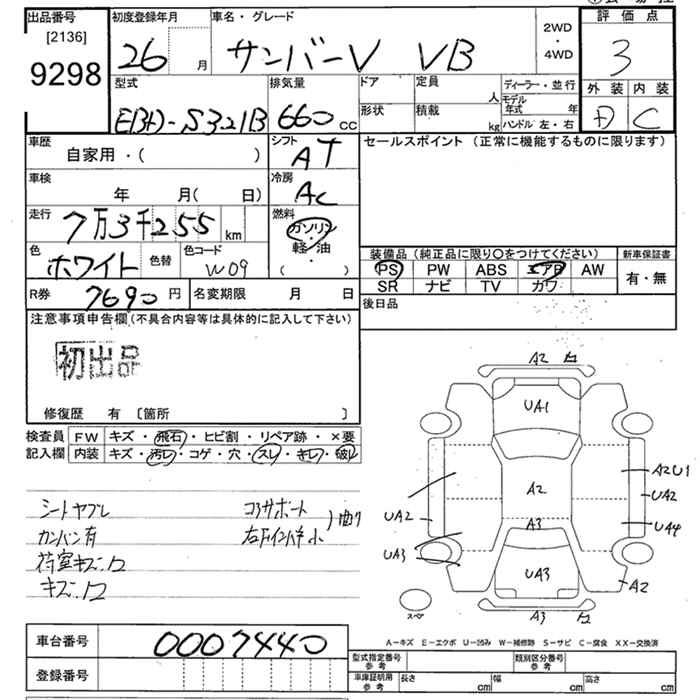 出品番号
[2136]
9298
初度登録年月
26 月
車名・グレード
サンバーV VB
2WD
・
4WD
評価点
3
外装 内装
D C
型式
EBD-S321B
排気量
660 cc
ドア
形状
定員
人
積載
kg
ディーラー・並行
モデル年式 年
ハンドル 左・右
車歴
自家用・( )
シフト
AT
車検
年 月( 日)
冷房
AC
走行
7万3千255 km
燃料
ガソリン
軽油
( ・ )
色
ホワイト
色替
色コード
W09
R券
7690 円
名変期限 月 日
セールスポイント (正常に機能するものに限ります)
装備品(純正品に限り〇をつけてください)
新車保証書
PS PW ABS エアB AW
SR ナビ TV カワ
有・無
後日品
注意事項申告欄(不具合内容等は具体的に記入して下さい)
初出品
修復歴 有 〔箇所 〕
検査員 FW キズ・飛石・ヒビ割・リペア跡・×要
記入欄 内装 キズ・汚レ・コゲ・穴・スレ・キレ・破レ
シートヤブレ
カンバン有
荷室キズ、凹
キズ、凹
コアサポート
曲り
A2
UA1
A2
A3
UA3
A3
UA2
UA3
A2U1
UA2
UA4
A2
スペア
A-キズ E-エクボ U-凹み W-補修跡 S-サビ C-腐食 XX-交換済
車台番号
0007440
登録番号
型式指定番号 参考
類別区分番号 参考
車庫証明用 参考
長さ cm
幅 cm
高さ cm